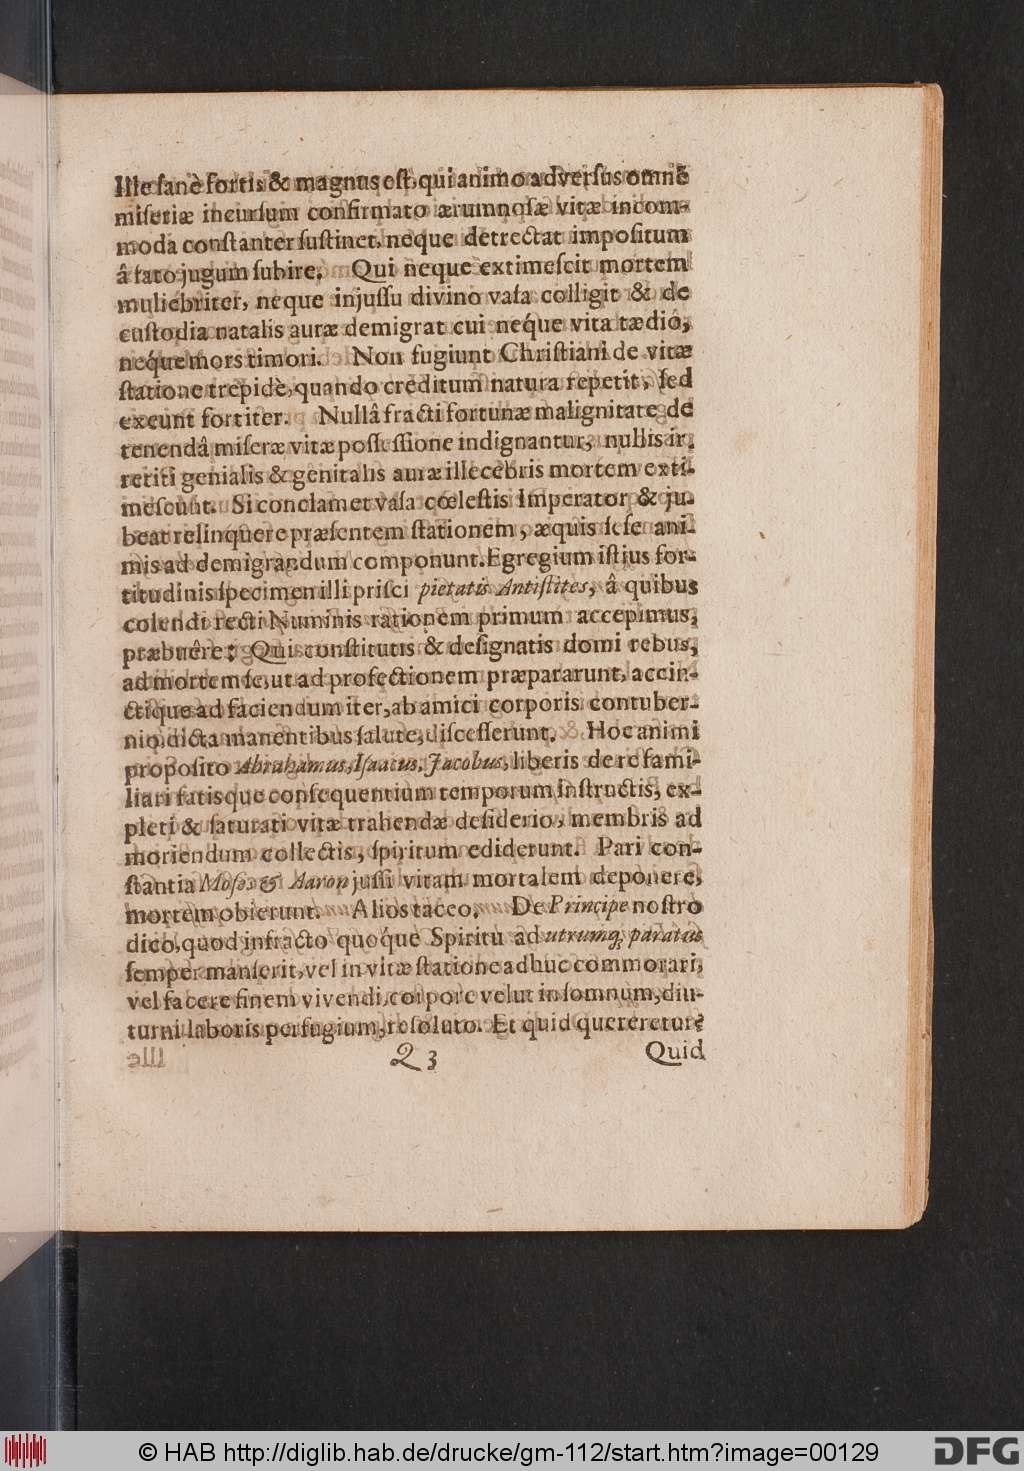 Ille ſanè fortis & magnus eſt, qui animo adverſus omnē
miſeriæ incurſum confirmato ærumnoſæ vitæ incom-
moda conſtanter ſuſtinet, neque detrectat impoſitum
â fato jugum ſubire. Qui neque extimeſcit mortem
muliebriter, neque injuſſu divino vaſa colligit & de
cuſtodia natalis auræ demigrat cui neq́ue vita tædio,
neq́ue mors timori. Non fugiunt Chriſtiani de vitæ
ſtatione trepidè, quando creditum natura repetit, ſed
exeunt fortiter. Nullâ fracti fortunæ malignitate de
tenendâ miſeræ vitæ poſſeſſione indignantur, nullis ir-
retiti genialis & genitalis auræ illecebris mortem exti-
meſcunt. Si conclamet vaſa cœleſtis Imperator & ju-
beat relinquere præſentem ſtationem, æquis ſeſe ani-
mis ad demigrandum componunt. Egregium iſtius for-
titudinis ſpecimen illi priſci pietatis Antiſtites, â quibus
colendi recti Numinis rationem primum accepimus,
præbuêre: Qui conſtitutis & deſignatis domi rebus,
ad mortem ſe, ut ad profectionem præpararunt, accin-
ctique ad faciendum iter, ab amici corporis contuber-
nio, dicta manentibus ſalute, diſceſſerunt. Hoc animi
propoſito Abrahamus, Iſaacus, Jacobus, liberis de re fami-
liari fatisque conſequentium temporum inſtructis, ex-
pleti & ſaturati vitæ trahendæ deſiderio, membris ad
moriendum collectis, ſpiritum ediderunt. Pari con-
ſtantia Moſes & Aaron juſſi vitam mortalem deponere,
mortem obierunt. Alios taceo. De Principe noſtro
dico, quod infracto quoq́ue Spiritu ad utrumq; paratus
ſemper manſerit, vel in vitæ ſtatione adhuc commorari,
vel facere finem vivendi, corpore velut in ſomnum, diu-
turni laboris perfugium, reſoluto. Et quid quereretur?
Q 3 Quid
© HAB http://diglib.hab.de/drucke/gm-112/start.htm?image=00129
DFG